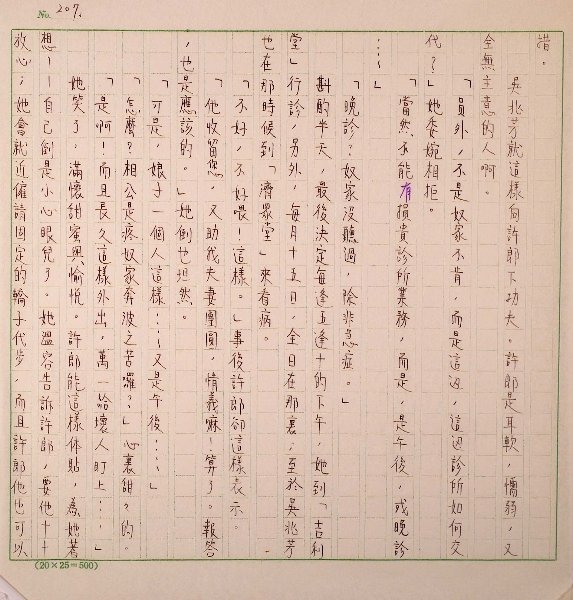 No. 207.
措。
吳兆芳就這樣向許郎下功夫。許郎是耳軟,懦弱,又
全無主意的人啊。
「員外,不是奴家不肯,而是這迌,這迌診所如何交
代?」她委婉相拒。
「當然不能有損貴診所業務,而是,是午後,或晚診
⋯⋯」
「晚診?奴家沒聽過,除非急症。」
斟酌半天,最後決定每逢五逢十的下午,她到「吉利
堂」行診,另外,每月十五日,全日在那裏,至於吳兆芳
也在那時候到「濟眾堂」來看病。
「不好,不好喂!這樣。」事後許郎卻這樣表示。
「他收留您,又助我夫妻團圓,情義嘛!算了。報答
,也是應該的。」她倒也坦然。
「可是,娘子一個人這樣⋯⋯又是午後⋯⋯」
「怎麼?相公是疼奴家奔波之苦囉?」心裏甜?的。
「是啊!而且長久這樣外出,萬一給壞人盯上⋯⋯」
她笑了,滿懷甜蜜與愉悅。許郎能這樣体貼,為她著
想——自己倒是小心眼兒了。她溫容告訴許郎,要他十十
放心;她會就近僱請固定的轎子代步,而且許郎他也可以
(20×25=500)